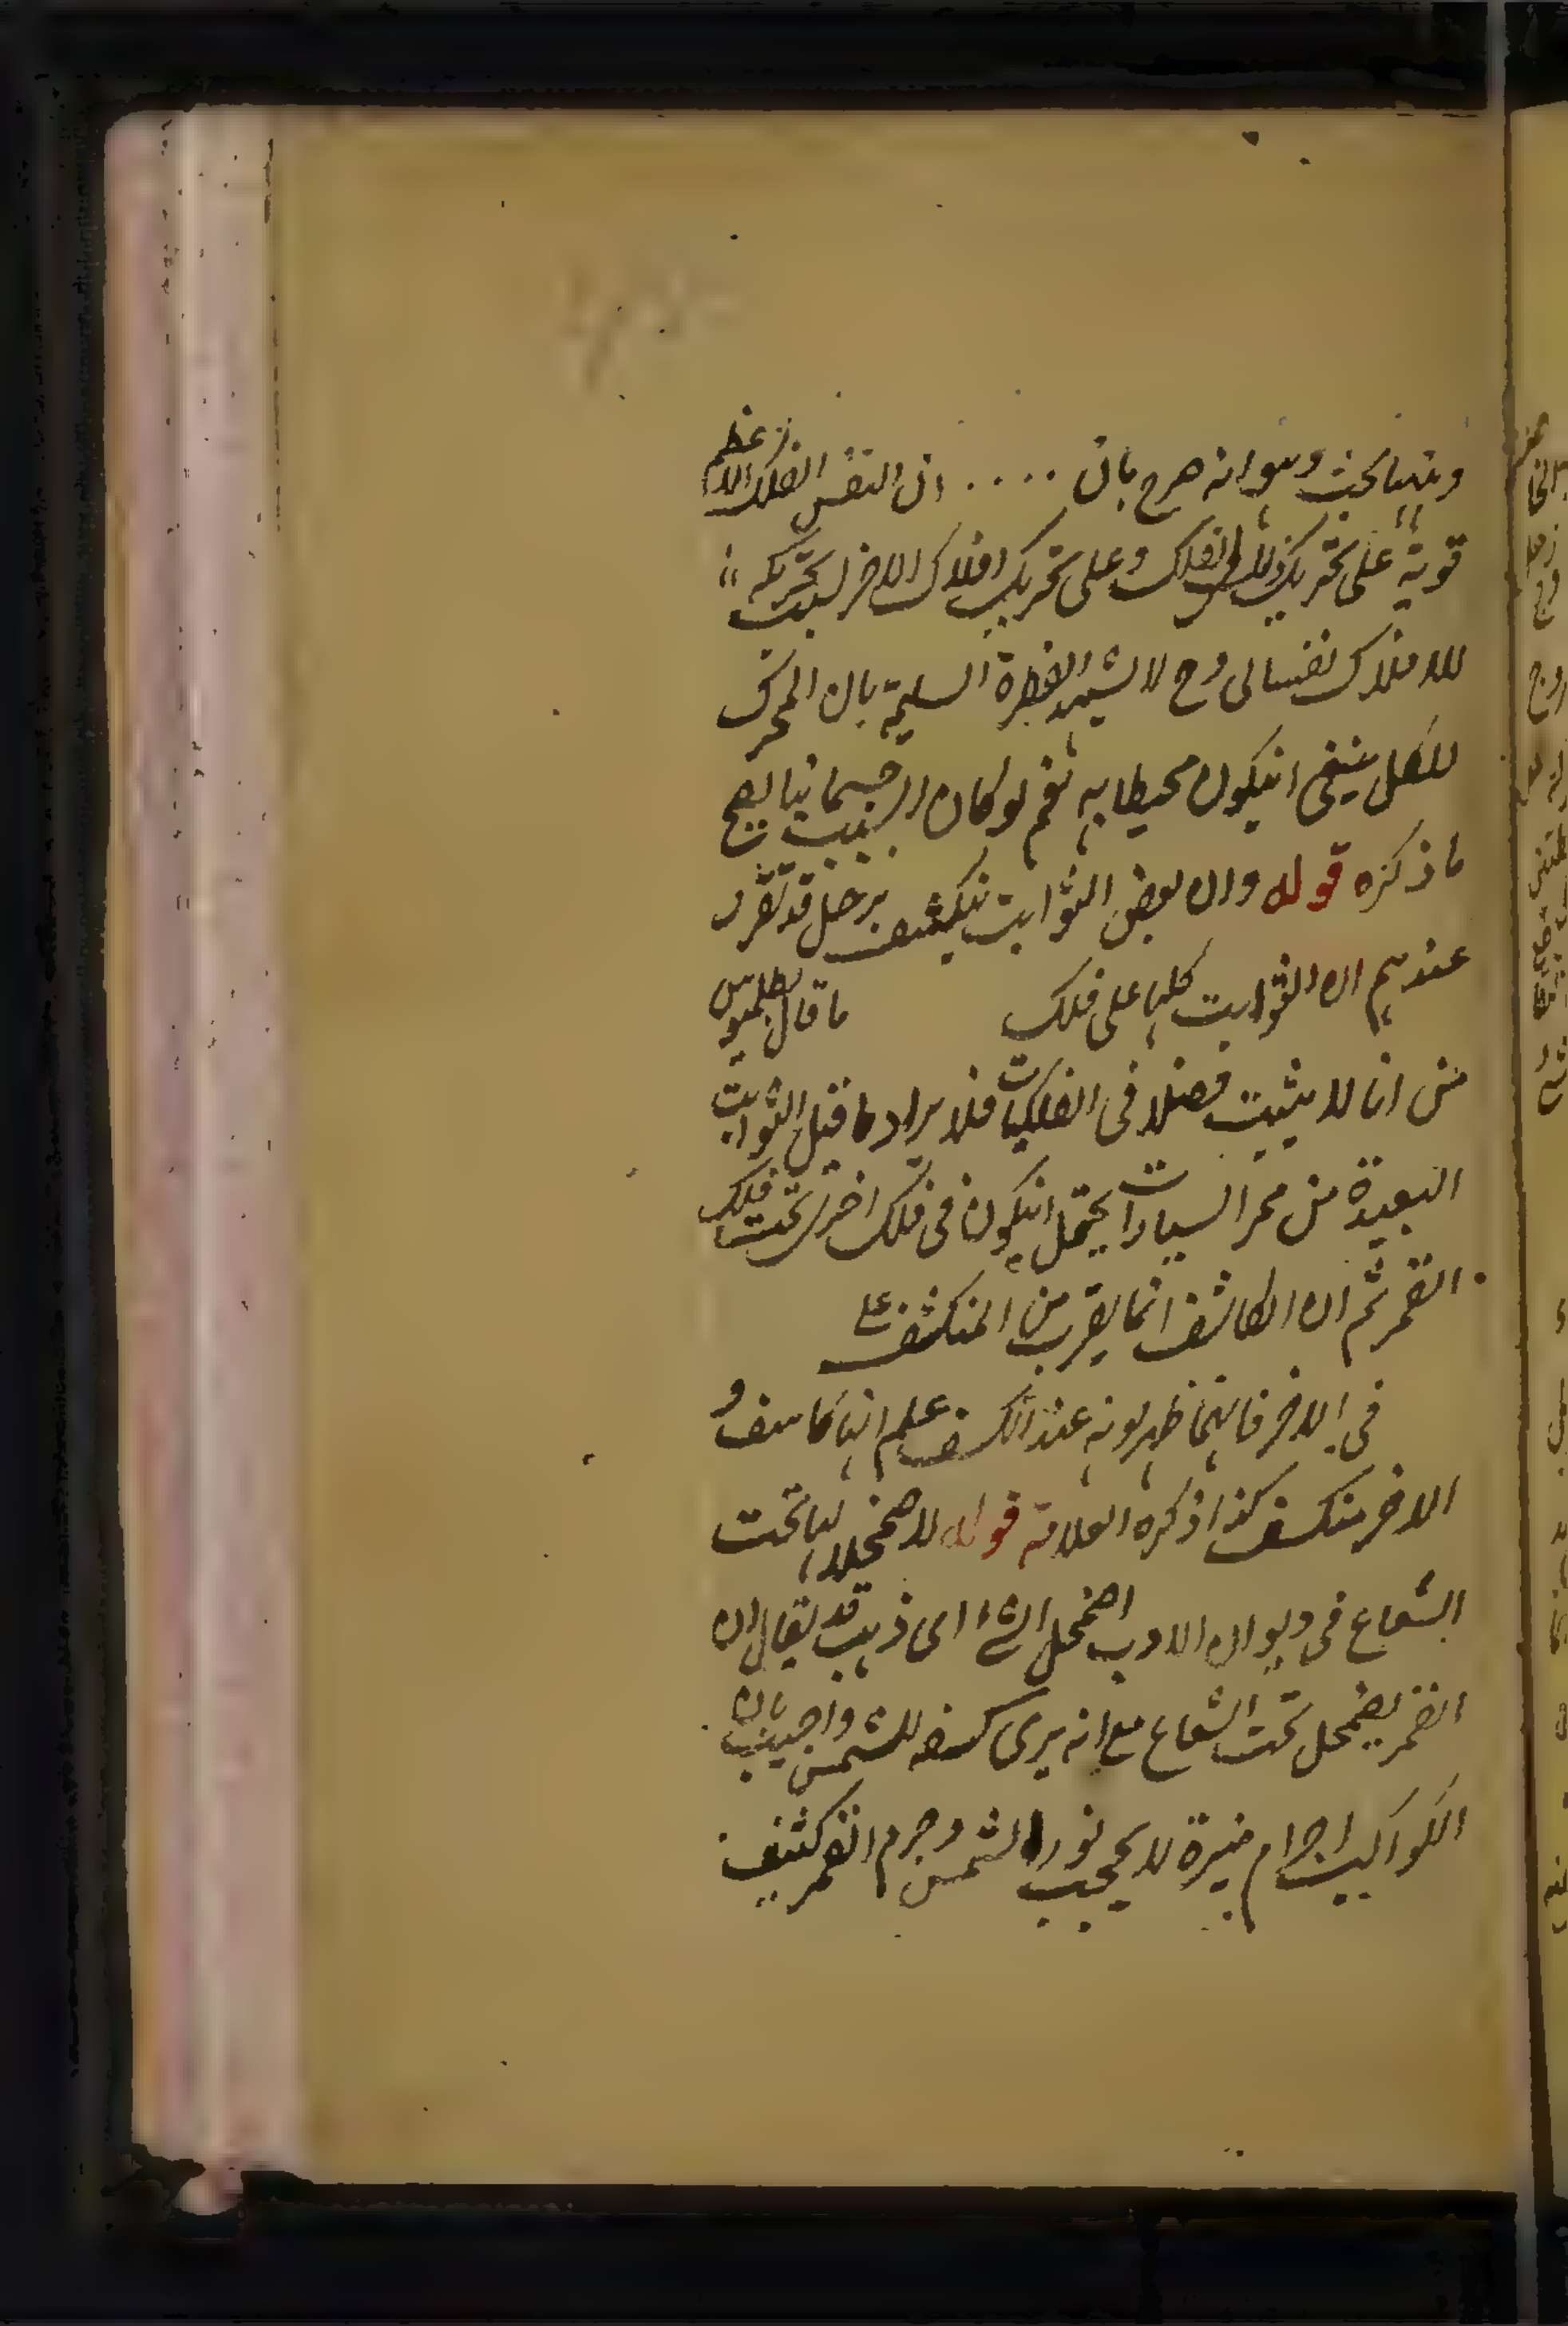 وههنا بحث وهو انه صرح بان .... ان النفس الفلك الاعظم
قوية على تحريك ذلك الفلك وعلى تحريك افلاك الاخر ليست تحريكه
للافلاك نفسانى وح لا لشهد الفطرة السليمة بان المحرك
للكل ينبغى انيكون محيطا به نعم لو كان السبب جسمانيا يصح
ما ذكره قوله وان بعض الثوابت ينكسف بزحل قد تقرر
عندهم ان الثوابت كلها على فلك ما قال بطلميوس
من انا لا يثبت فضلا فى الفلكيات فلا يراد ما قيل الثوابت
البعيدة من ممر السيارات يحتمل انيكون فى فلك اخر تحت فلك
القمر ثم ان الكاشف انما يقرب من المنكشف على
فى الاخر فايهما ظهر لونه عند الكسف علم انها كاسف و
الاخر منكسف كذا ذكره العلامة قوله لاضمحلالها تحت
الشعاع فى ديوان الادب اضمحل الشئ اى ذهب قد يقال ان
القمر يضمحل تحت الشعاع مع انه يرى كسفه للشمس واجيب بان
الكواكب اجرام منيرة لا يحجب نور الشمس وجرم القمر كثيف